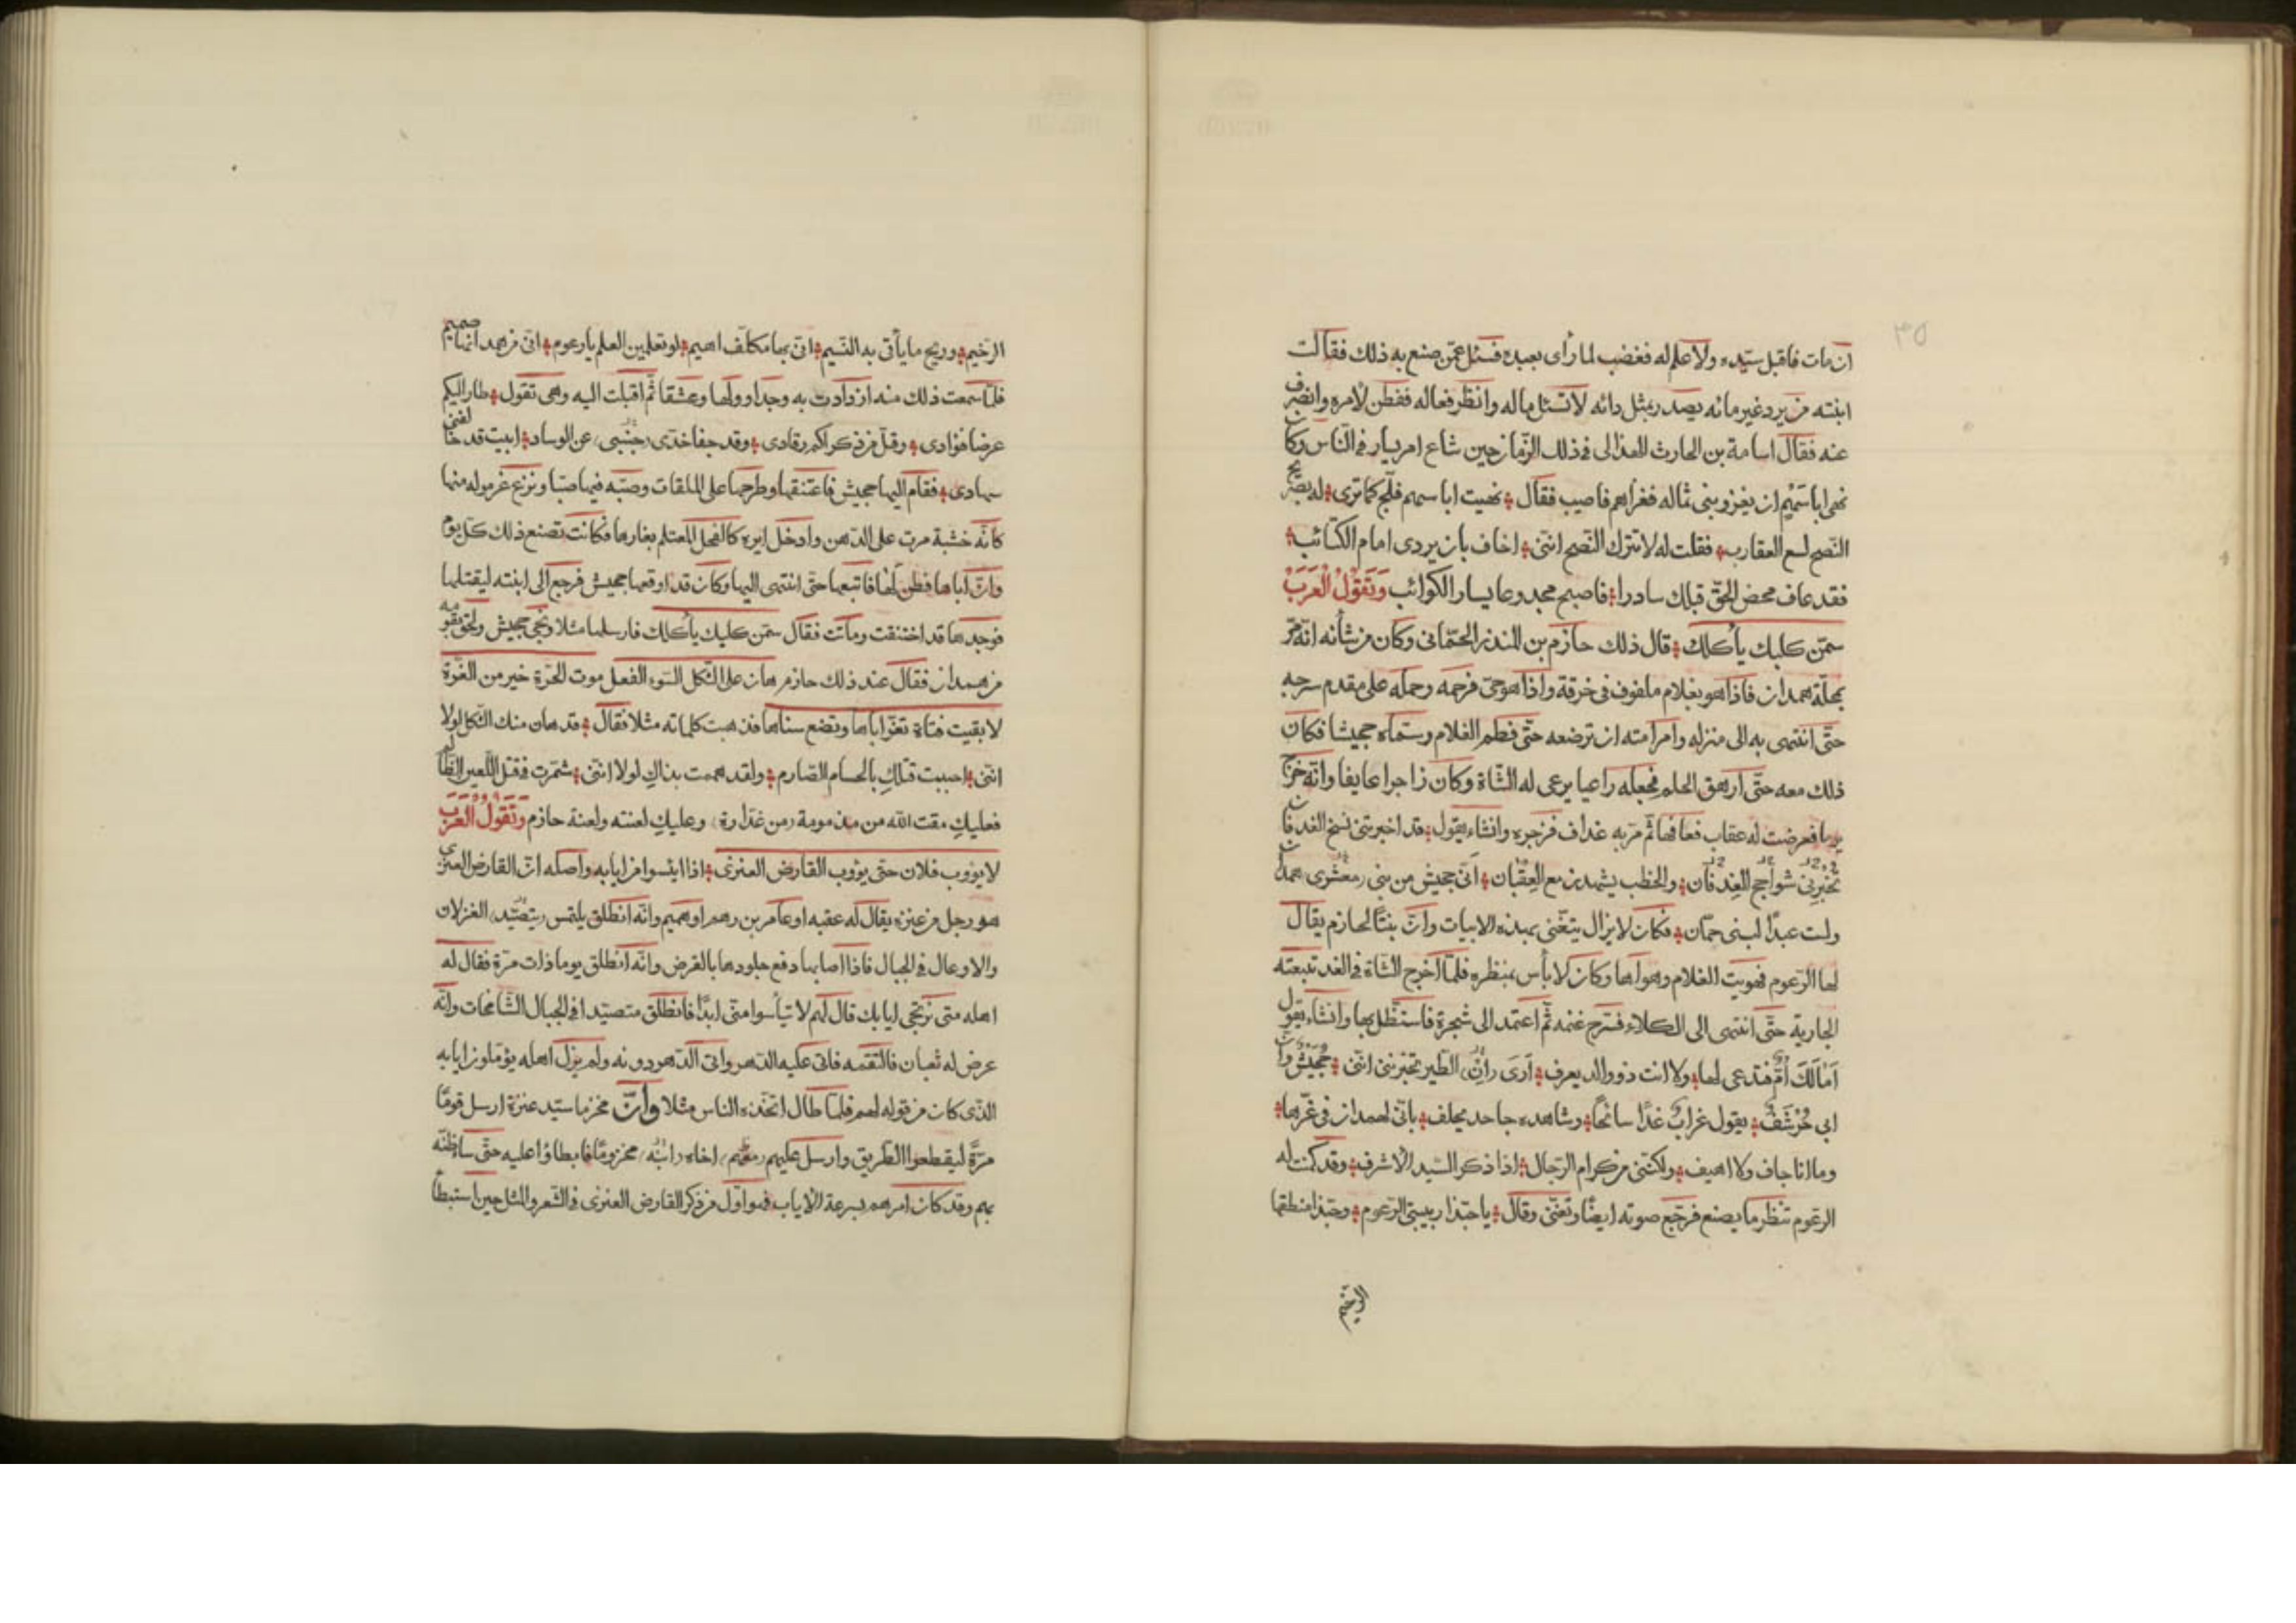 ٣٥
ان مات فاقبل سيّده ولا علم له فغضب لما رأى بعبده فسئل عمّن صنع به ذلك فقالت
ابنته من يرد غير مائه يصدر بمثل دائه لا تسئل ماله وانظر فعاله ففطن لأمره وانصرف
عنه فقال اسامة بن الحارث الهذلى فى ذلك الزّمان حين شاع امر يسار فى النّاس وكان
نهى ابا سهيم ان يغزو بنى ثماله فغزاهم فاصيب فقال نهيت ابا سهم فلجّ كما ترى له بصريح
النّصح لسع العقارب فقلت له لا تترك النّصح انّنى اخاف بان يردى امام الكتائب
فقد عاف محض الحقّ قبلك سادرا فاصبح مجدوعا يسار الكواعب وَتَقُوْلُ الْعَرَبُ
سمّن كلبك يأكلك قال ذلك حازم بن المنذر الحمّانى وكان من شأنه انّه مرّ
بمحلّة همدان فاذا هو بغلام ملفوف فى خرقة واذا هو حىّ فرحمه وحمله على مقدم سرجه
حتّى انتهى به الى منزله وامر امته ان ترضعه حتّى فطم الغلام وسمّاه جحيشا فكان
ذلك معه حتّى ارهق الحلم فجعله راعيا يرعى له الشّاة وكان زاجرا عايفا وانّه خرج
يوما فعرضت له عقاب فعافها ثمّ مرّ به غداف فزجره وانشاء يقول قد اخبرتنى نسخ الغدفان
تخبرنى شواحج الغدفان والخطب يشهدن مع العقبان انّى جحيش من بنى معشرى همدان
ولست عبدًا لبنى حمّان فكان لا يزال يتغّنى بهذه الابيات وانّ بنتًا لحازم يقال
لها الرّعوم فهويت الغلام وهواها وكان لا بأس بمنظره فلمّا اخرج الشّاة فى الغد تبعته
الجارية حتّى انتهى الى الكلاء فسرح غنمه ثمّ اعتمد الى شجرة فاستظّل بها وانشاء يقول
أمالك أمّ فتدعى لها ولا انت ذو والد يعرف أرى انّ الطّير تخبرنى انّنى جُحَيْشٌ وانّ
ابى حُرْشَفُ يقول غرابٌ غدًا سانحًا وشاهده جاحد يحلف بانّى لهمدان فى غرّها
وما انا جاف ولا اهيف ولكنّنى من كرام الرّجال اذا ذكر السّيد الأشرف وقد كمنت له
الرعوم تنظر ما يصنع فرجّع صوته ايضًا وتغنّى وقال يا حبّذا ربيبتى الرّعوم وحبّذا منطقها
الرخيم
الرّخيم وريح ما يأتى به النّسيم انّى بها مكلّف اهيم لو تعلمين العلم يا رعوم انّى من همدانها صميم
فلمّا سمعت ذلك منه ازدادت به وجدا وولها وعشقا ثمّ اقبلت اليه وهى تقول طار اليكم
عرضا فؤادى وقلّ من ذكراكم رقادى وقد جفا خدّى جنبى عن الوساد ابيت قد حالفنى
سهادى فقام اليها جحيش فاعتنقها وطرحها على الملقات وصبّه فيها صبّا ونزع غرموله منها
كانّه خشبة مرت على الدّهن وادخل ايره كالفحل المعتلم بغارها فكانت تصنع ذلك كلّ يوم
وانّ اباها فطن لها فاتبعها حتّى انتهى اليها وكان قد اوقعها جحيش فرجع الى ابنته ليقتلها
فوجدها قد اختنقت وماتت فقال سمّن كلبك يأكلك فارسلها مثلا ونجى جحيش ولحق بقومه
من همدان فقال عند ذلك حازم هان على الثّكل السّوء الفعل موت الحرّة خير من العرّة
لا بقيت فتاة تعرّ اباها وتضع سناها فذهبت كلماته مثلا فقال قد هان منك الثّكل لولا
انّنى احببت قتلك بالحسام الصّارم ولقد هممت بذاك لولا انّنى شمّرت فقتل اللّعين الظّالم
فعليكِ مقت الله من مذمومة من غدّارة وعليكِ لعنته ولعنة حازم وَتَقُوْلُ الْعَرَبُ
لا يؤوب فلان حتى يؤوب القارض العنزى اذا ايئسوا من ايابه واصله انّ القارض العنزى
هو رجل من عنزه يقال له عقبه او عامر بن رهم او هميم وانّه انطلق يلتمس يتصيّد الغزلان
والاوعال فى الجبال فاذا اصابها دفع جلودها بالقرض وانّه انطلق يوما ذات مرّة فقال له
اهله متى نرتجى ايابك قال لهم لا تيأسوا منّى ابدًا فانطلق متصيّدا فى الجبال الشّامخات وانّه
عرض له ثعبان فالتقمه فاتى عليه الدّهر واتى الدّهر دونه ولم يزل اهله يؤمّلون ايابه
الذّى كان من قوله لهم فلمّا طال اتّخذه النّاس مثلا وانّ مخزما سيّد عنزة ارسل قومًا
مرّةً ليقطعوا الطّريق وارسل عليهم معهم اخاه ابنه مخزومًا فابطاؤا عليه حتّى ساء ظنّه
بهم وقد كان امرهم بسرعة الاياب فهو اوّل من ذكر القارض العنزى فى الشّعر والمثل حين استبطأ